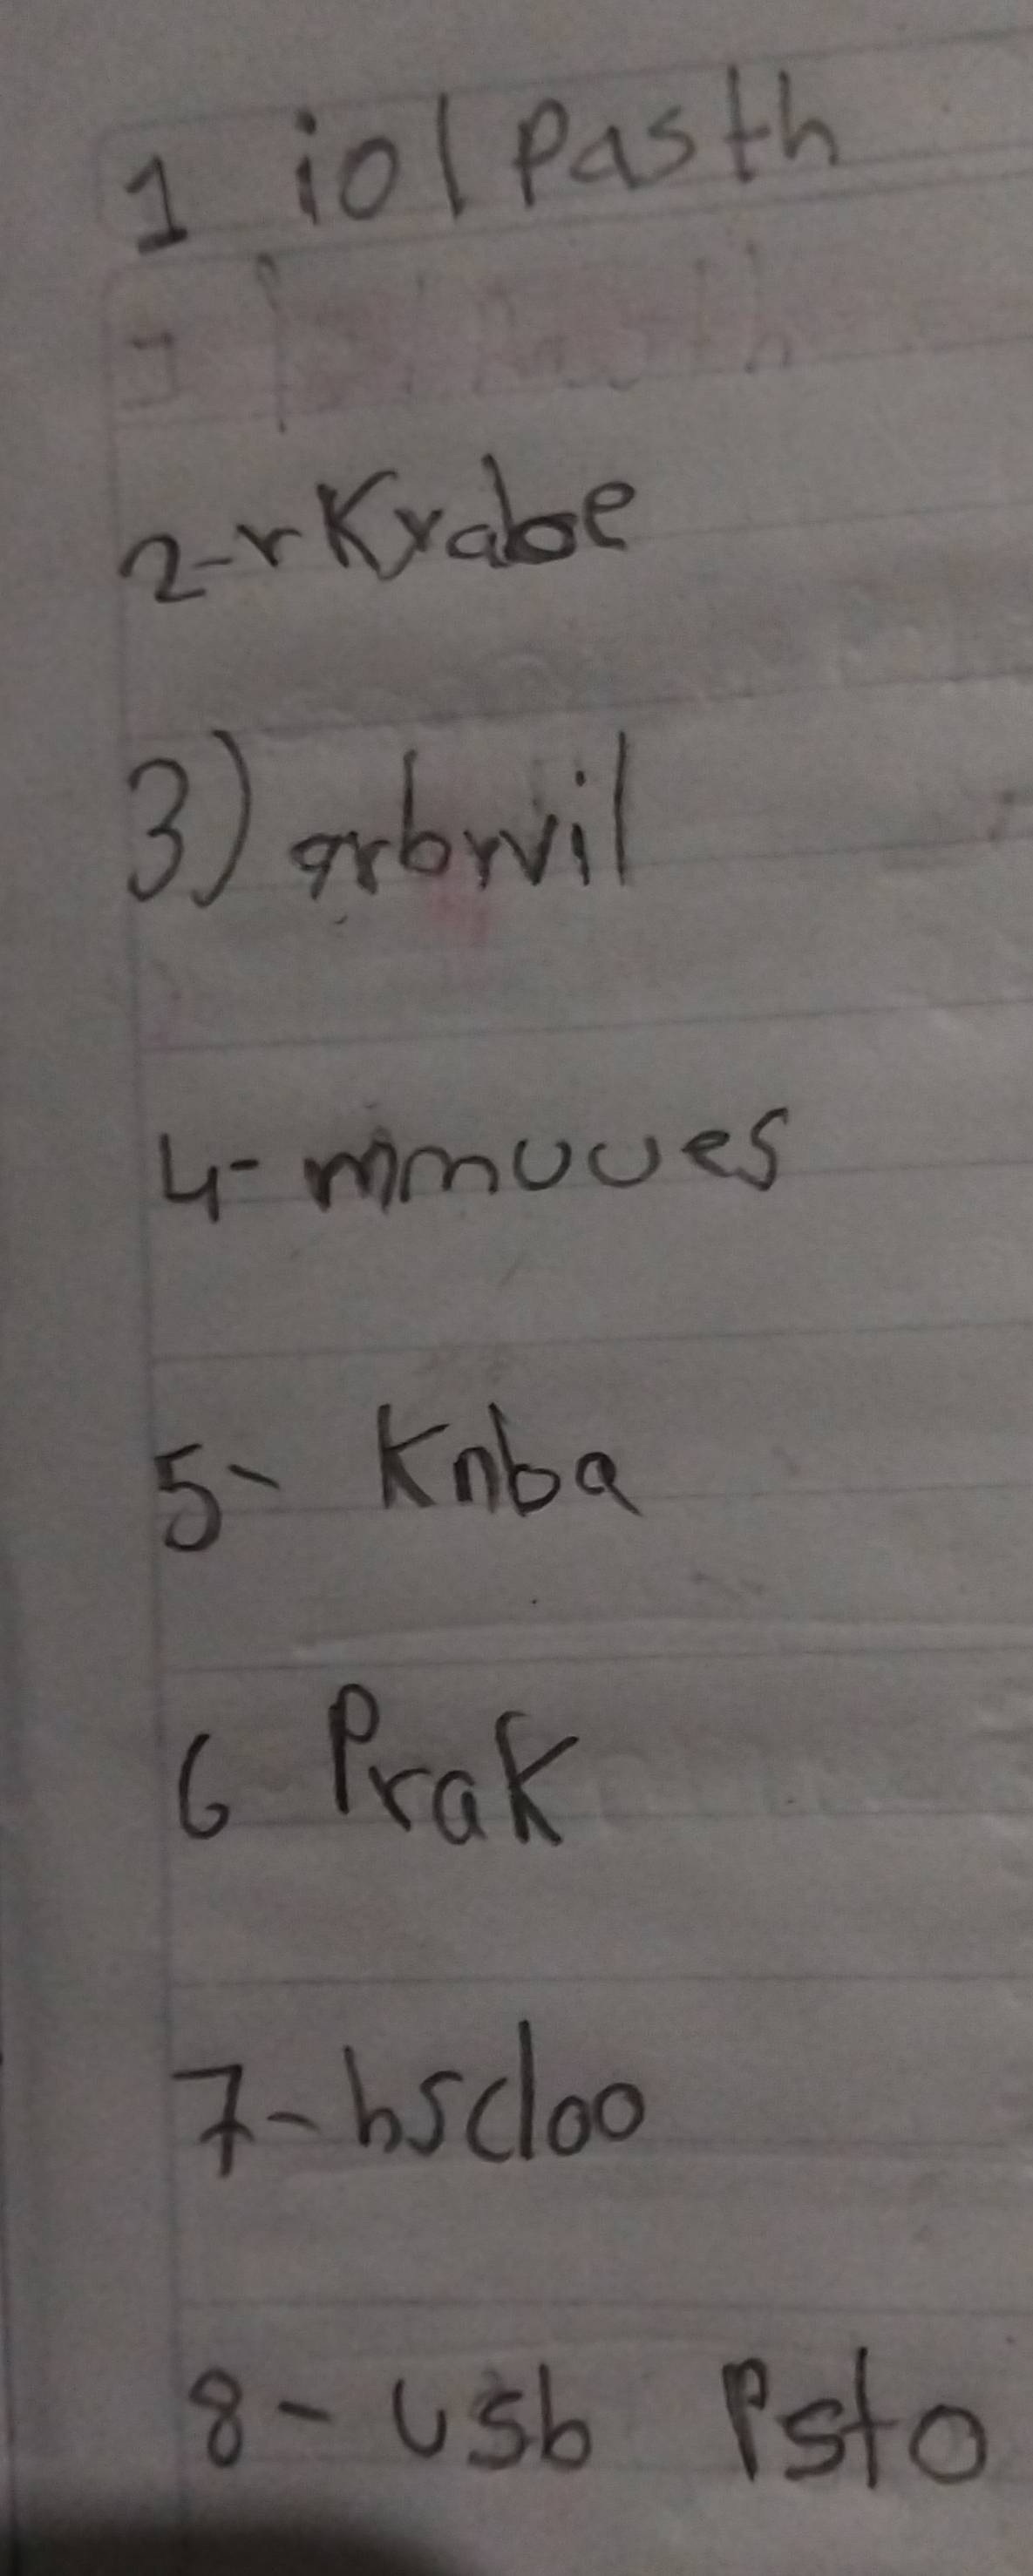 1 iol Pasth
2- rKrabe
3) arbrvil
4- mmuues
5- Knba
6 Prak
7- hscloo
8- usb Psto